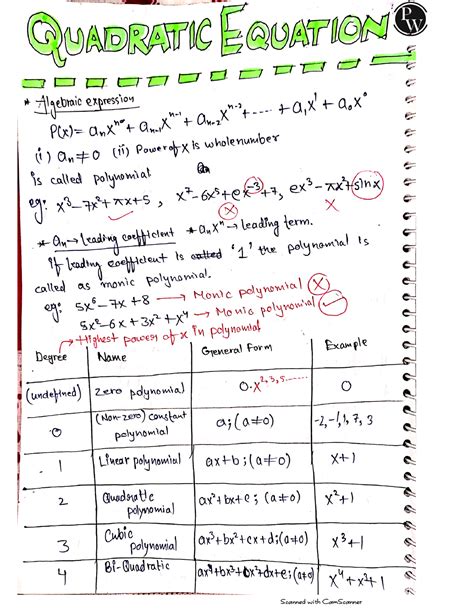 QUADRATIC EQUATION
PW
* Algebraic expression
P(x) = aₙxⁿ + aₙ₋₁xⁿ⁻¹ + aₙ₋₂xⁿ⁻² + ---- + a₁x¹ + a₀x⁰
(i) aₙ ≠ 0 (ii) Power of x is whole number
is called polynomial
eg: x³-7x²+πx+5, x⁷-6x⁵+ex⁻³+7, ex³-πx²+sinx
* aₙ → Leading coefficient * aₙxⁿ → Leading term.
If leading coefficient is '1' the polynomial is
called as monic polynomial.
eg: 5x⁶-7x+8 → Monic polynomial
5x²-6x+3x²+x⁴ → Monic polynomial
→ Highest power of x in polynomial
Degree Name General Form Example
(undefined) zero polynomial 0·x²,³,⁵...... 0
0 (Non-zero) constant polynomial a; (a≠0) -2, -1, 1, 7, 3
1 Linear polynomial ax+b; (a≠0) x+1
2 Quadratic polynomial ax²+bx+c; (a≠0) x²+1
3 Cubic polynomial ax³+bx²+cx+d; (a≠0) x³+1
4 Bi-Quadratic ax⁴+bx³+cx²+dx+e; (a≠0) x⁴+x²+1
Scanned with CamScanner